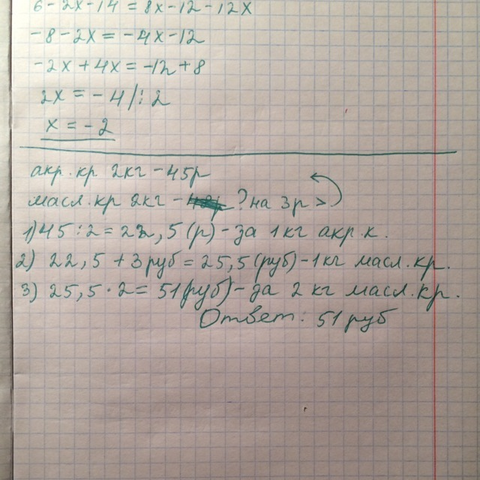 6-2x-14 = 8x-12-12x
-8-2x = -4x-12
-2x+4x = -12+8
2x = -4 /: 2
x = -2
акр.кр 2кг - 45р
масл.кр 2кг - ? на 3р >
1) 45 : 2 = 22,5 (р) - за 1кг акр.к.
2) 22,5 + 3руб = 25,5 (руб) - 1кг масл.кр.
3) 25,5 · 2 = 51 (руб) - за 2 кг масл.кр.
Ответ: 51 руб